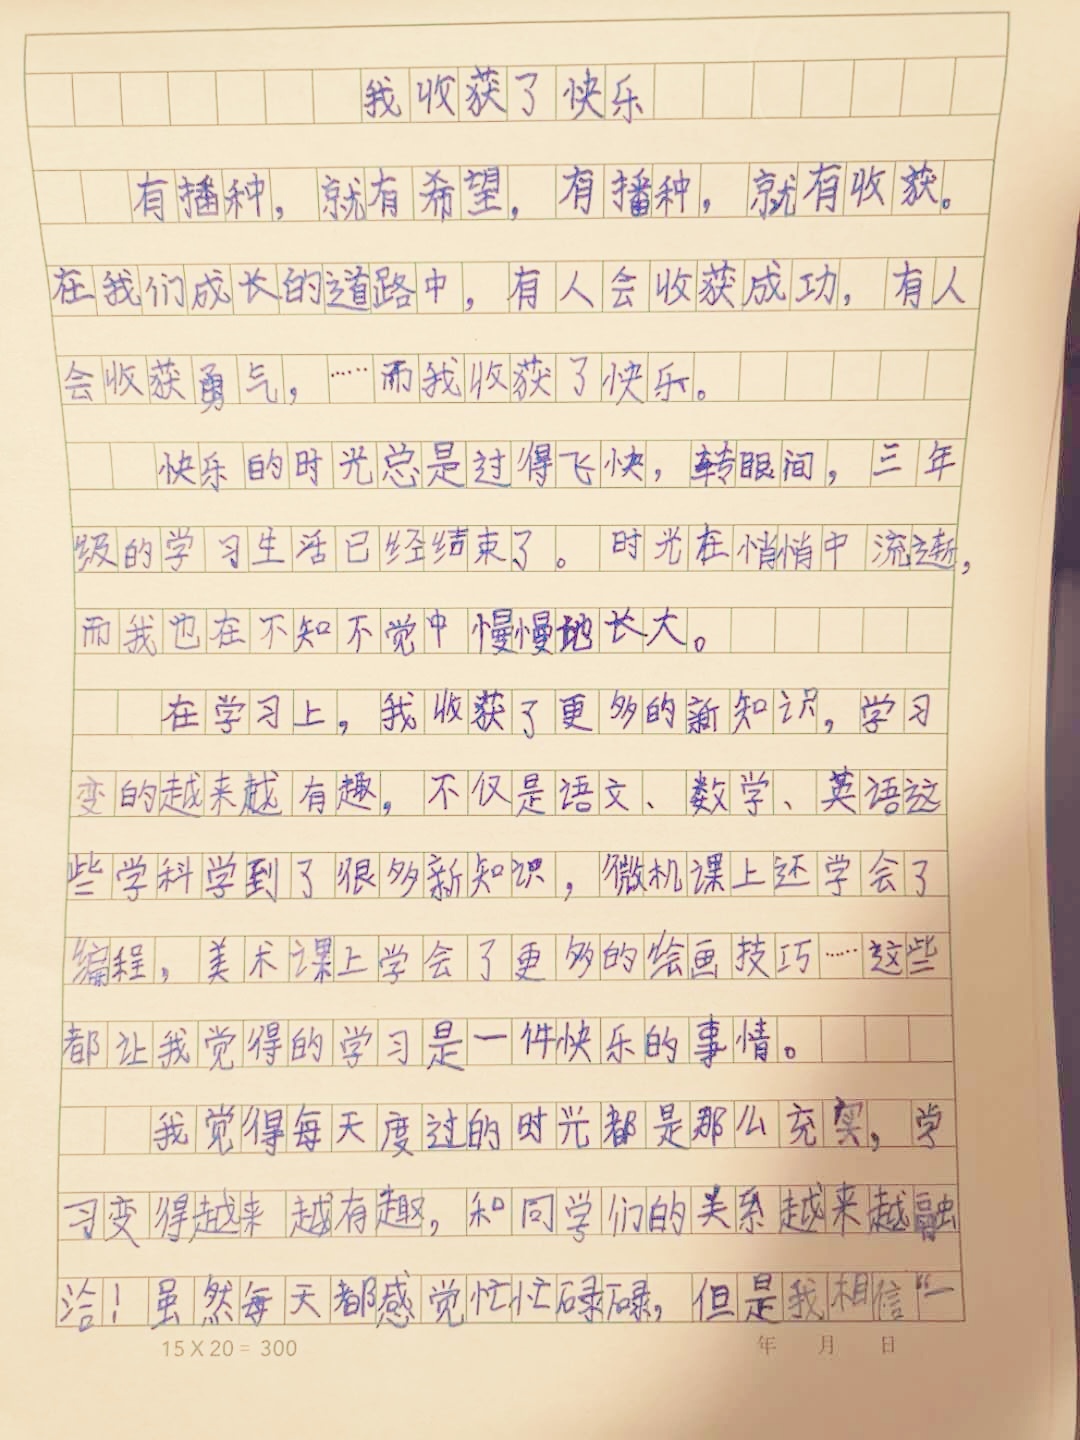 我收获了快乐
有播种，就有希望，有播种，就有收获。
在我们成长的道路中，有人会收获成功，有人
会收获勇气，……而我收获了快乐。
快乐的时光总是过得飞快，转眼间，三年
级的学习生活已经结束了。时光在悄悄中流逝，
而我也在不知不觉中慢慢地长大。
在学习上，我收获了更多的新知识，学习
变的越来越有趣，不仅是语文、数学、英语这
些学科学到了很多新知识，微机课上还学会了
编程，美术课上学会了更多的绘画技巧……这些
都让我觉得的学习是一件快乐的事情。
我觉得每天度过的时光都是那么充实，学
习变得越来越有趣，和同学们的关系越来越融
洽！虽然每天都感觉忙忙碌碌，但是我相信“一
15X20=300
年 月 日